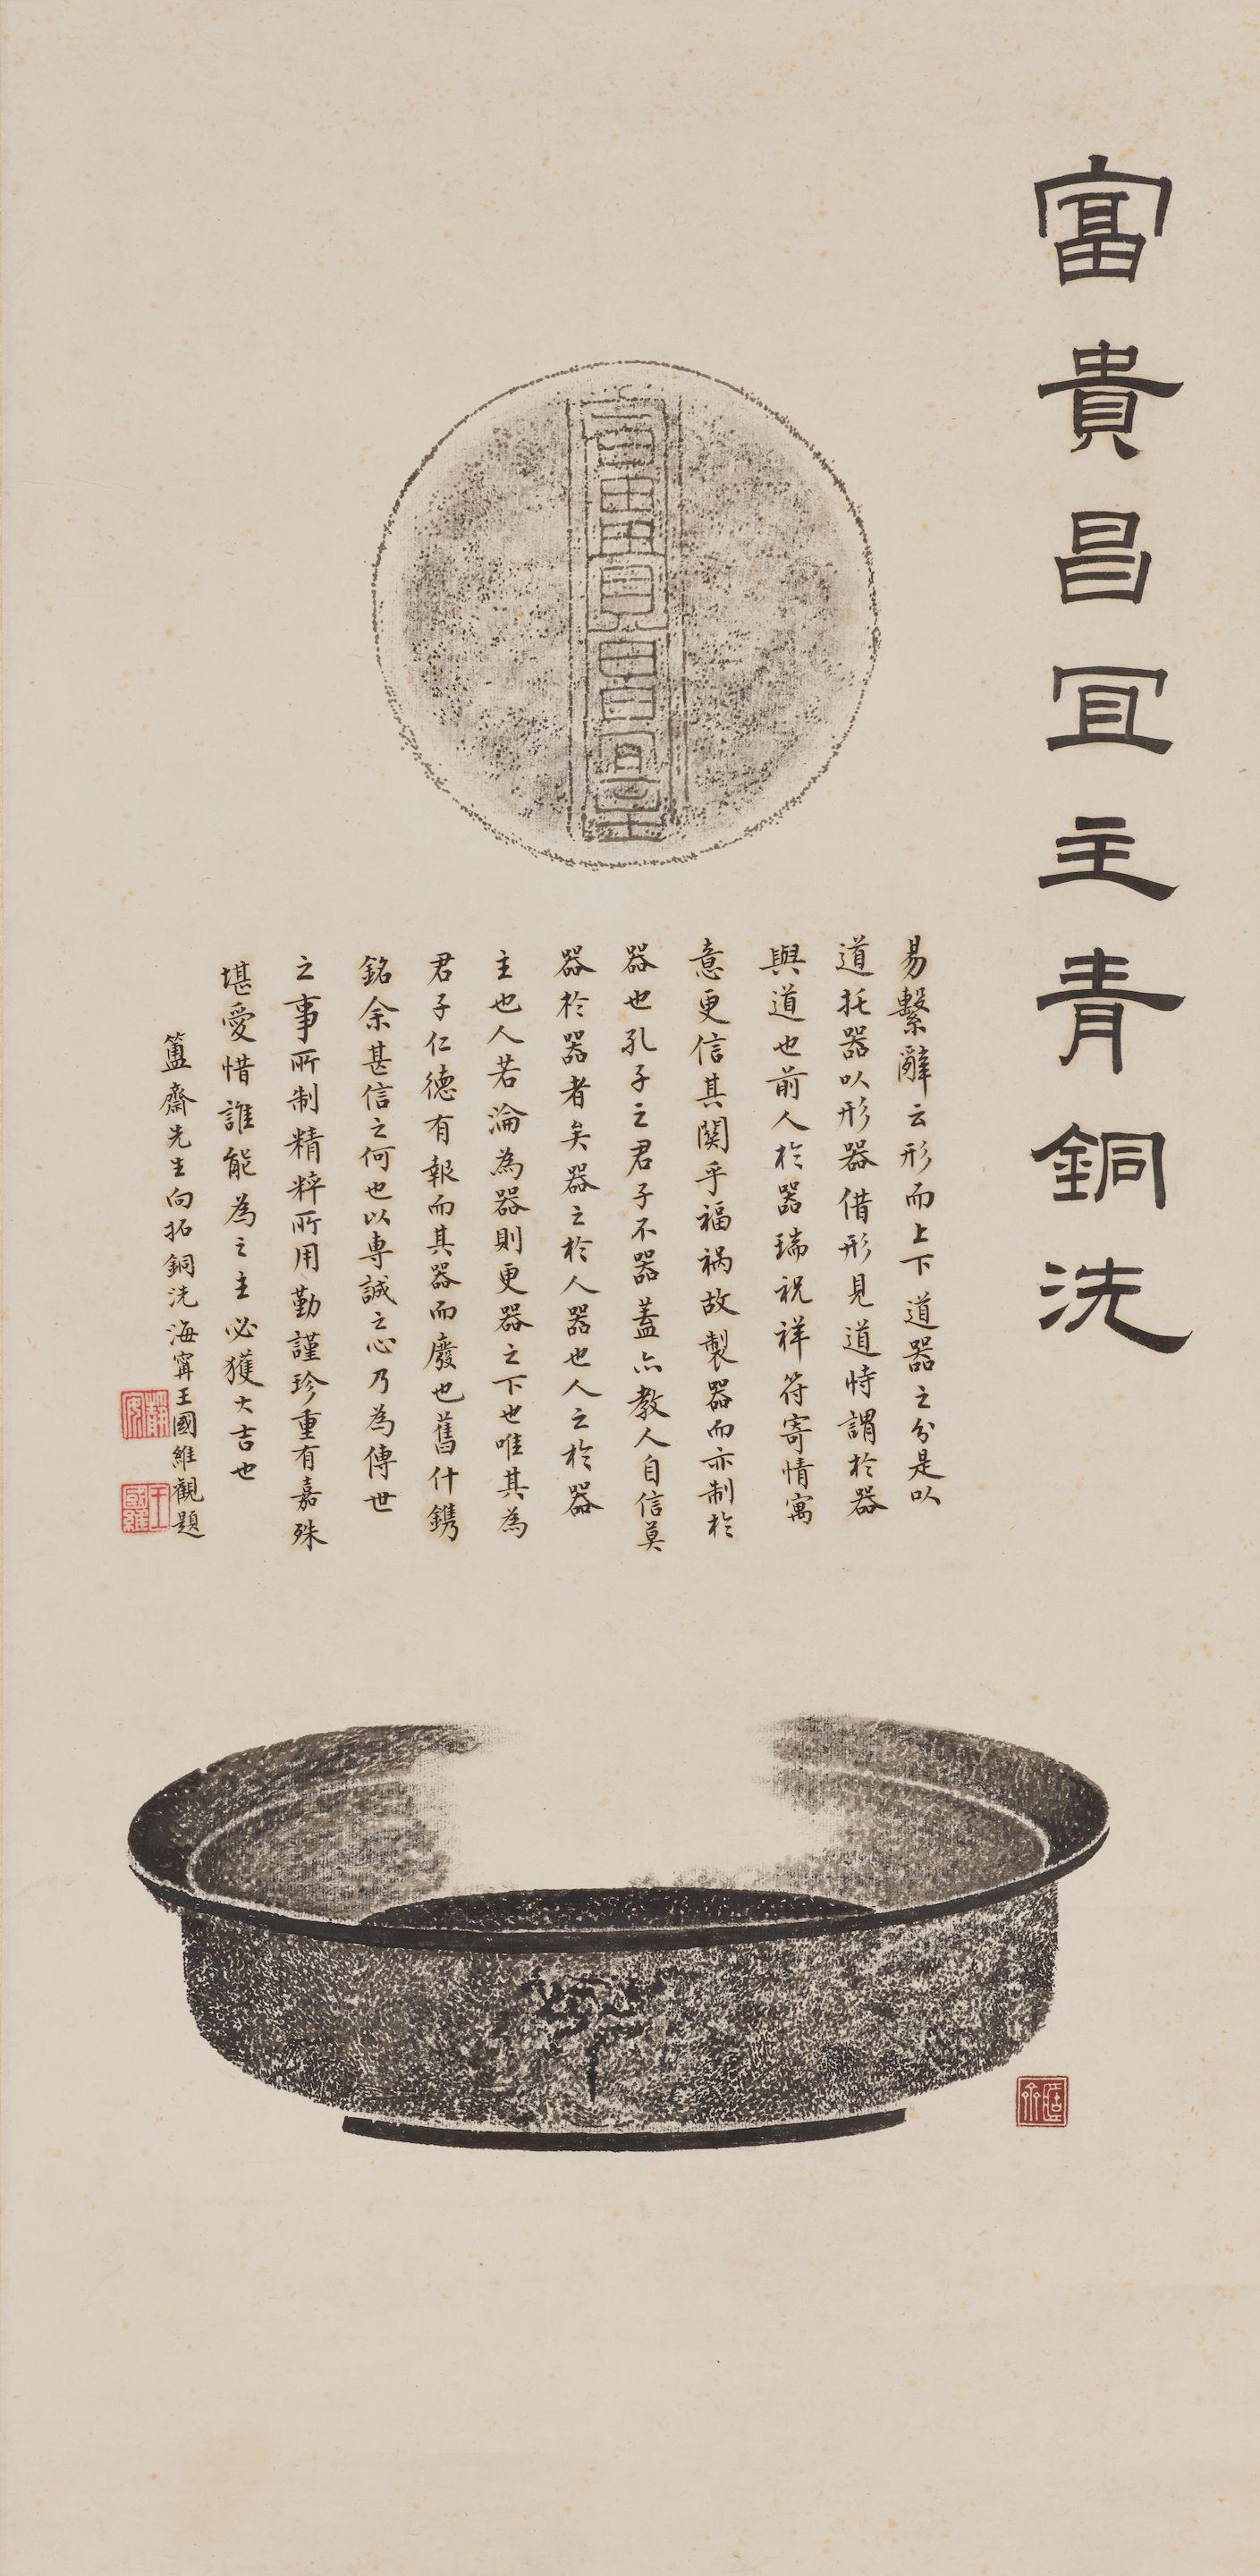 富貴昌宜主青銅洗
富貴昌宜主
易繫辭云形而上下道器之分是以
道托器以形器借形見道恃謂於器
與道也前人於器瑞祝祥符寄情寓
意更信其関乎福祸故製器而亦制於
器也孔子之君子不器蓋亦教人自信莫
器於器者矣器之於人器也人之於器
主也人若淪為器則更器之下也唯其為
君子仁德有報而其器而廢也舊什鐫
銘余甚信之何也以專誠之心乃為傳世
之事所制精粹所用勤謹珍重有嘉殊
堪愛惜誰能為之主必獲大吉也
簠齋先生向拓銅洗海寧王國維觀題
靜安
王國維